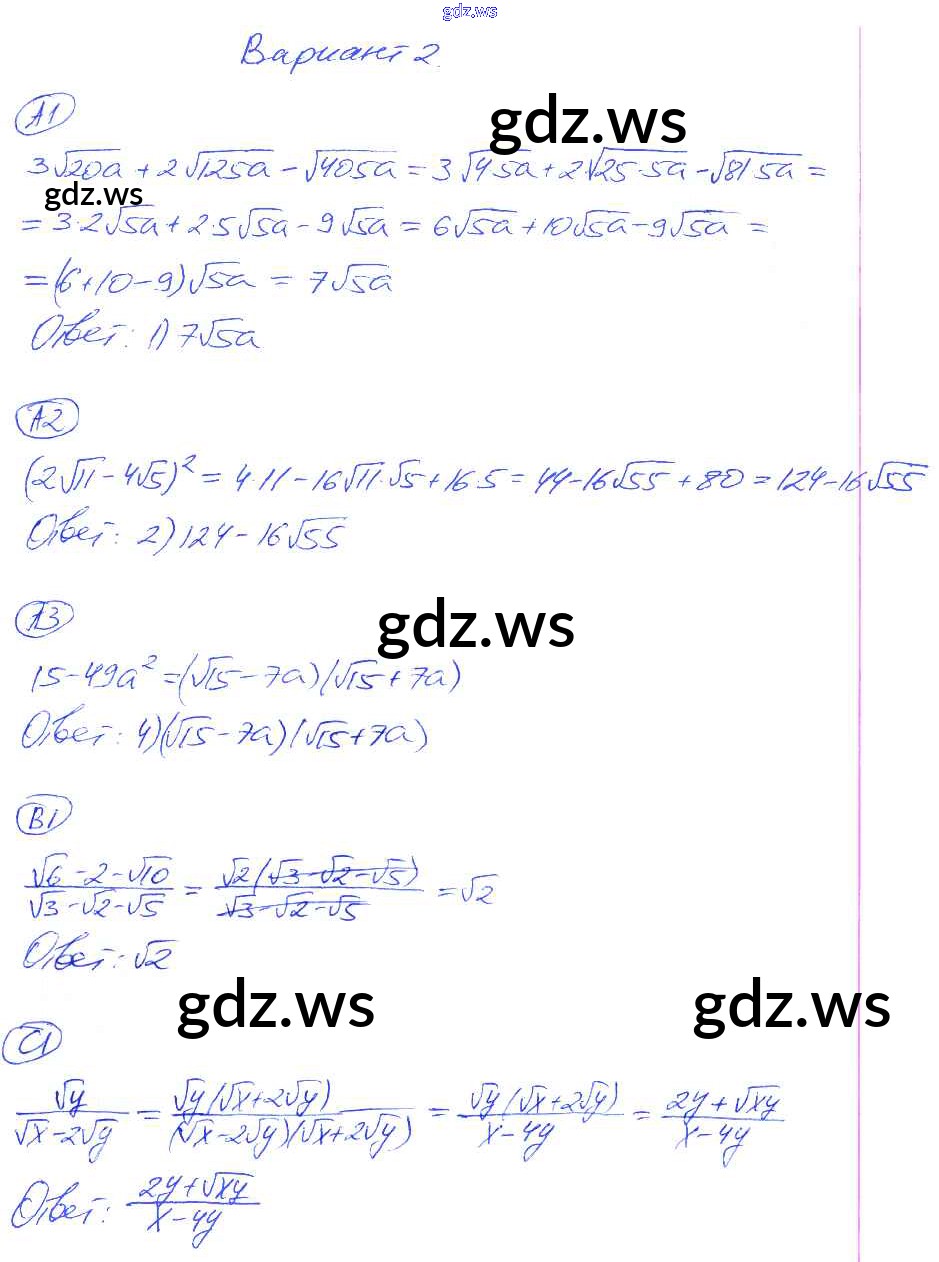 gdz.ws
Вариант 2.
А1
gdz.ws
3√20a + 2√125a - √405a = 3√4·5a + 2√25·5a - √81·5a =
gdz.ws
= 3·2√5a + 2·5√5a - 9√5a = 6√5a + 10√5a - 9√5a =
= (6+10-9)√5a = 7√5a
Ответ: 1) 7√5a
А2
(2√11 - 4√5)² = 4·11 - 16√11·√5 + 16·5 = 44 - 16√55 + 80 = 124 - 16√55
Ответ: 2) 124 - 16√55
А3
gdz.ws
15 - 49a² = (√15 - 7a)(√15 + 7a)
Ответ: 4) (√15 - 7a)(√15 + 7a)
В1
(√6 - 2 - √10)/(√3 - √2 - √5) = √2(√3 - √2 - √5)/(√3 - √2 - √5) = √2
Ответ: √2
gdz.ws gdz.ws
С1
√y/(√x - 2√y) = √y(√x + 2√y)/((√x - 2√y)(√x + 2√y)) = √y(√x + 2√y)/(x - 4y) = (2y + √xy)/(x - 4y)
Ответ: (2y + √xy)/(x - 4y)